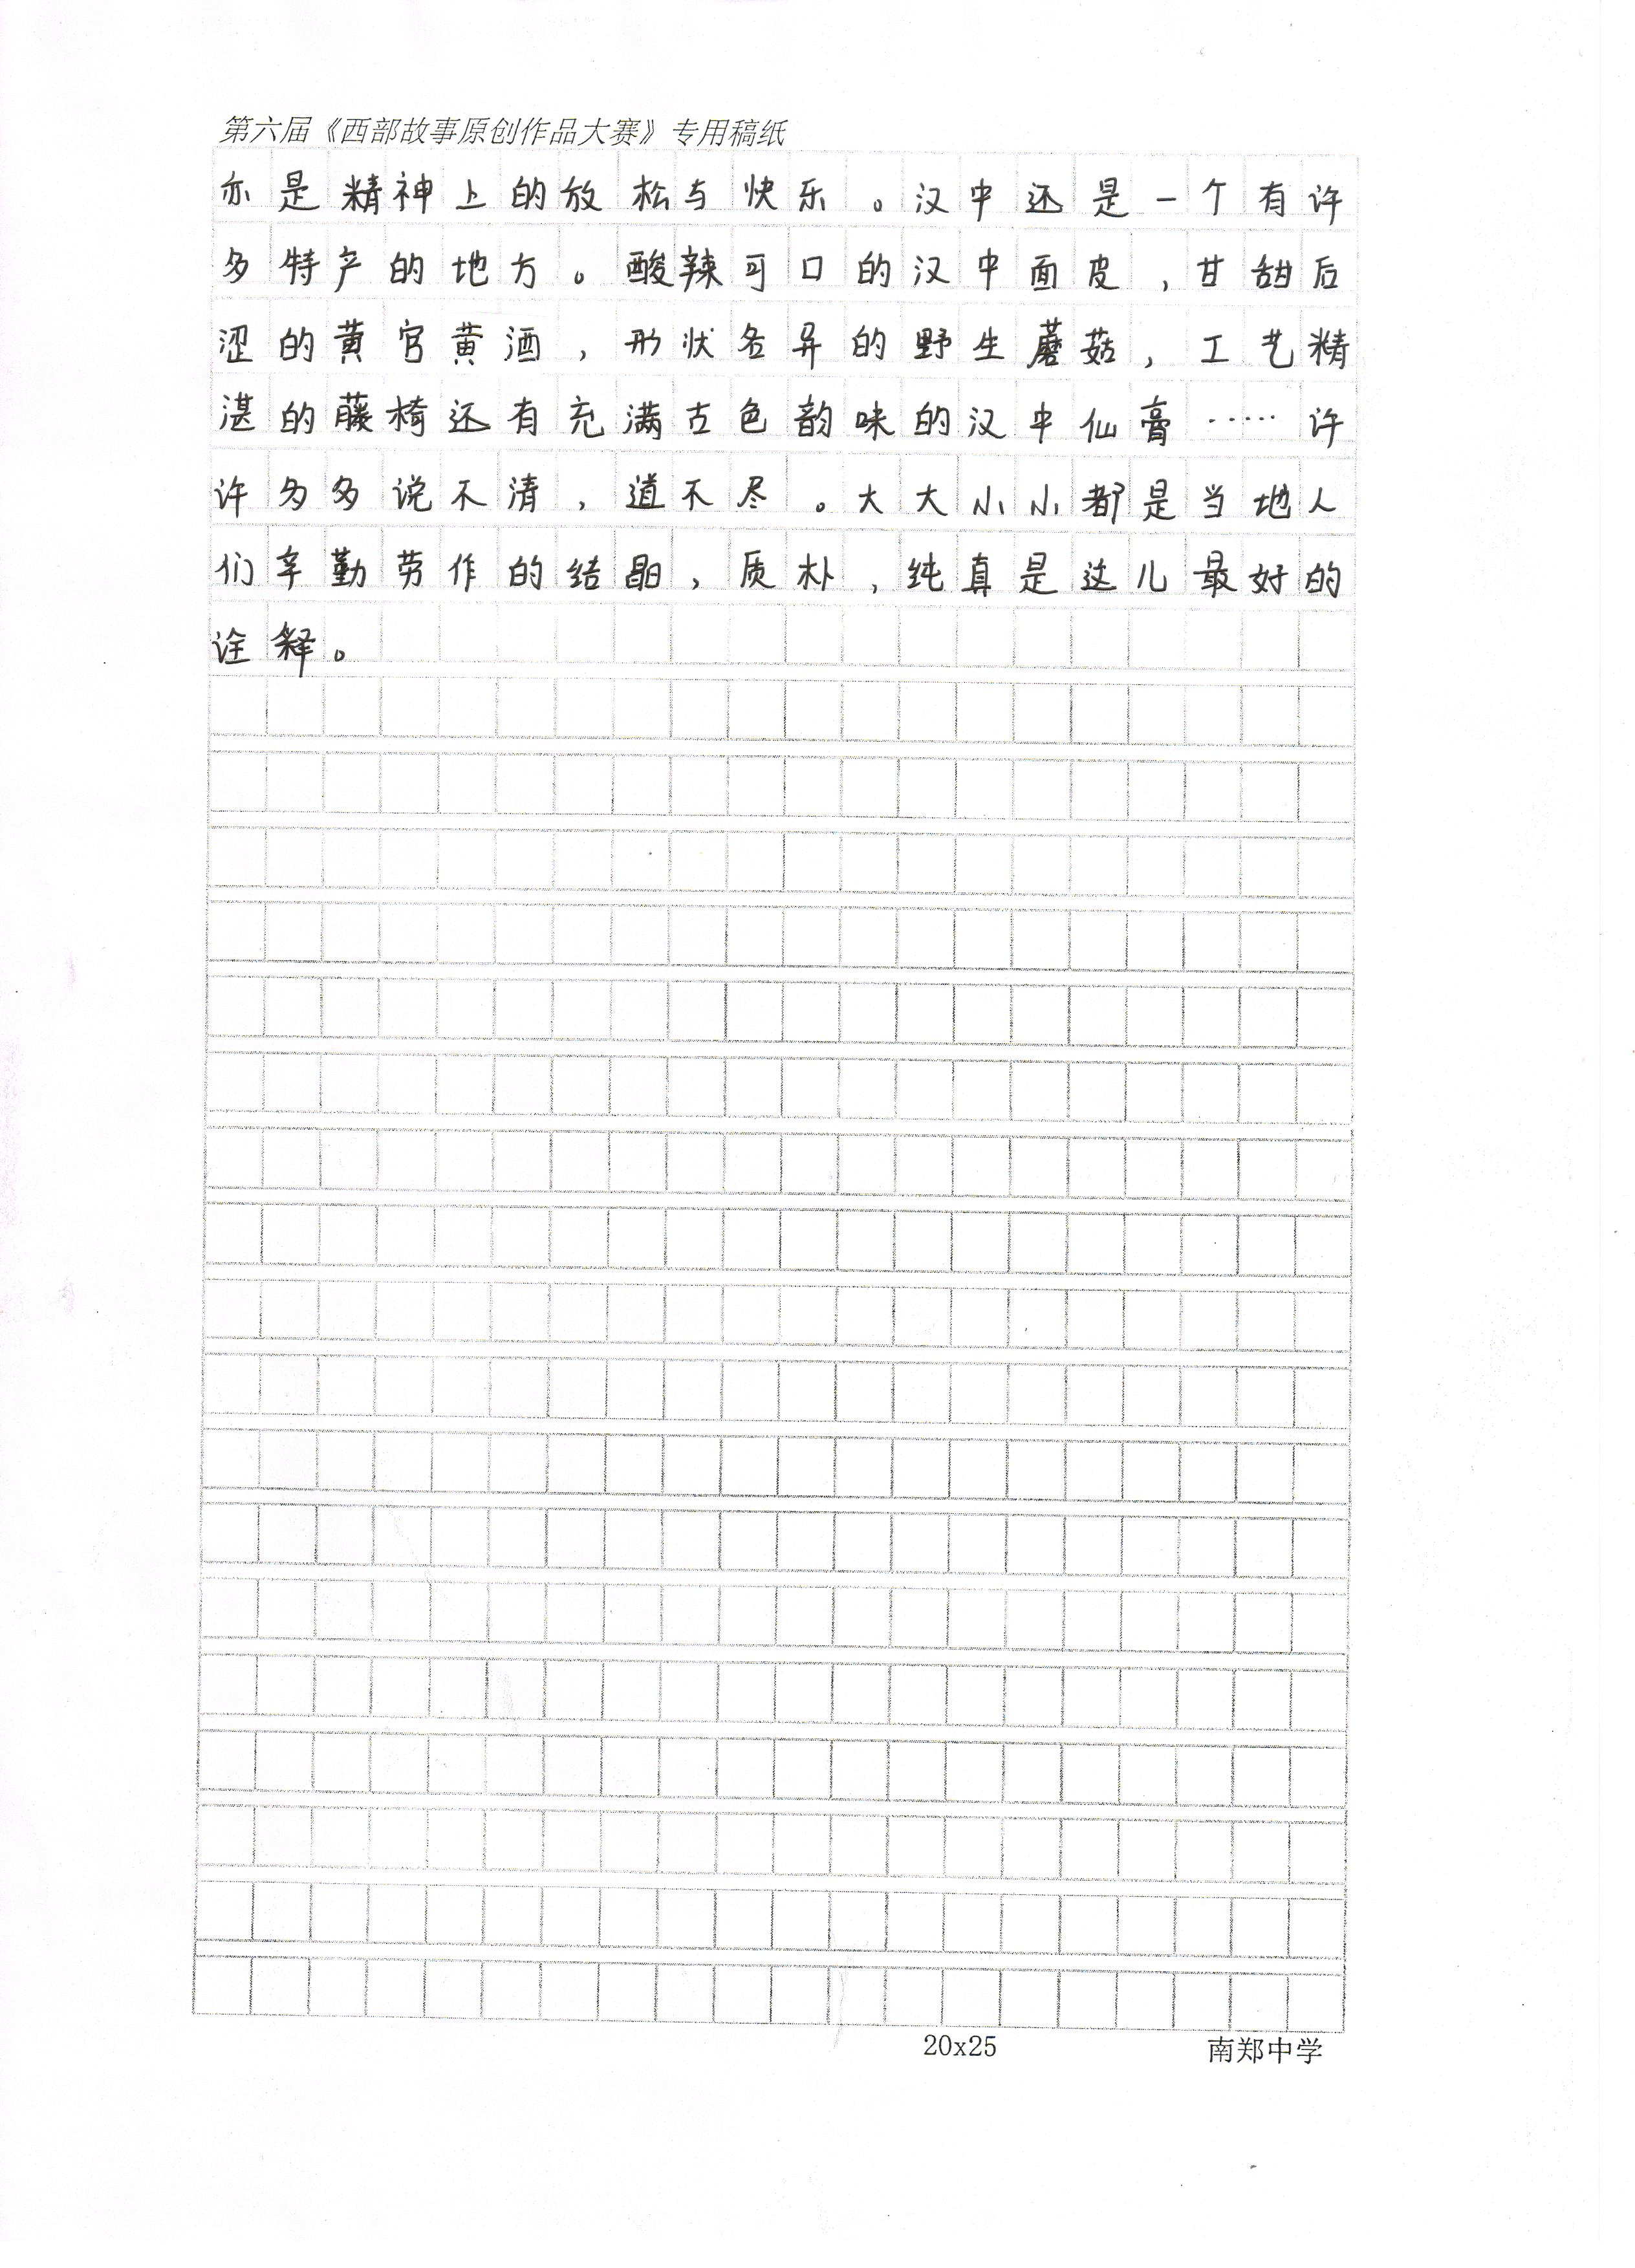 第六届《西部故事原创作品大赛》专用稿纸
亦是精神上的放松与快乐。汉中还是一个有许
多特产的地方。酸辣可口的汉中面皮，甘甜后
涩的黄官黄酒，形状各异的野生蘑菇，工艺精
湛的藤椅还有充满古色韵味的汉中仙膏……许
许多多说不清，道不尽。大大小小都是当地人
们辛勤劳作的结晶，质朴，纯真是这儿最好的
诠释。
20x25 南郑中学